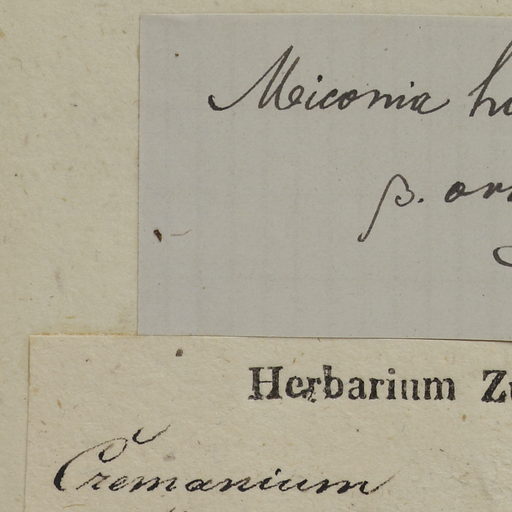 Miconia
β.
Herbarium
Cremanium